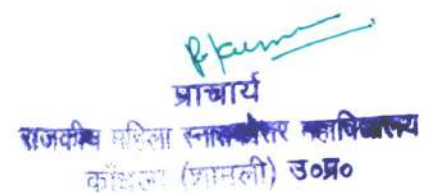 प्राचार्य
राजकीय महिला स्नातकोत्तर महाविद्यालय
(शामली) उ०प्र०